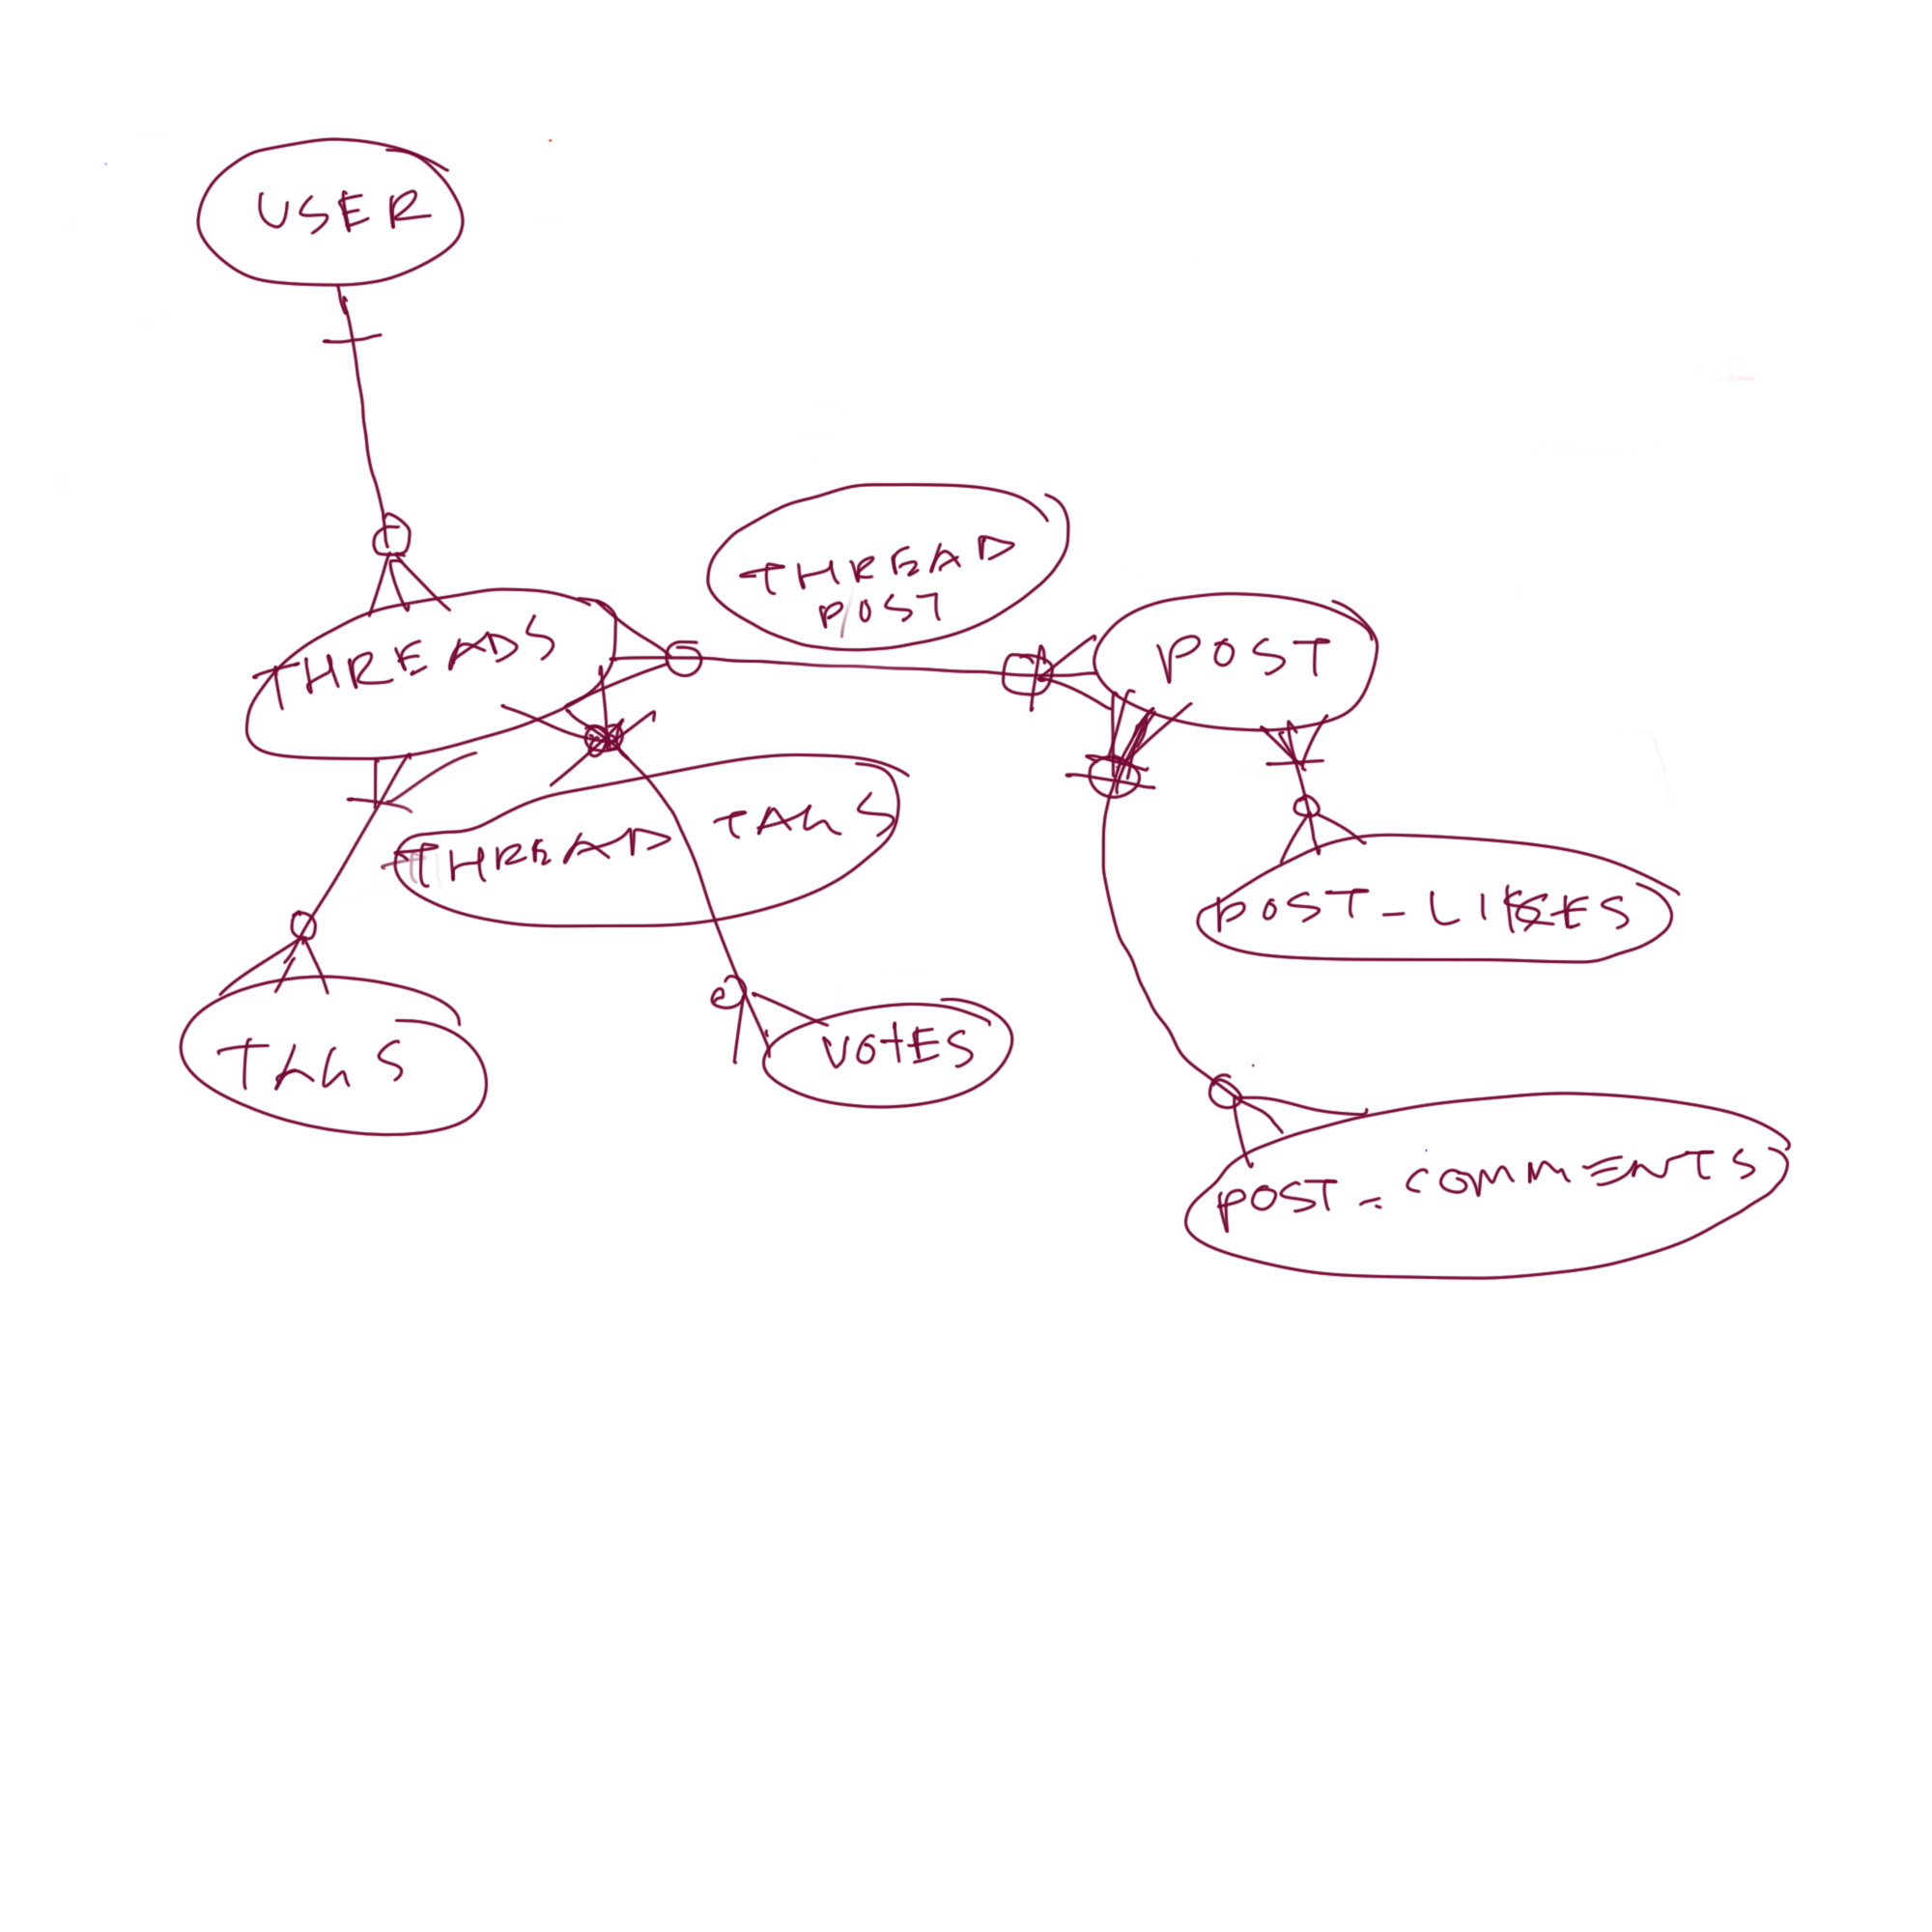 USER
THREADS
THREAD
POST
POST
THREAD TAGS
POST_LIKES
TAGS
VOTES
POST_COMMENTS